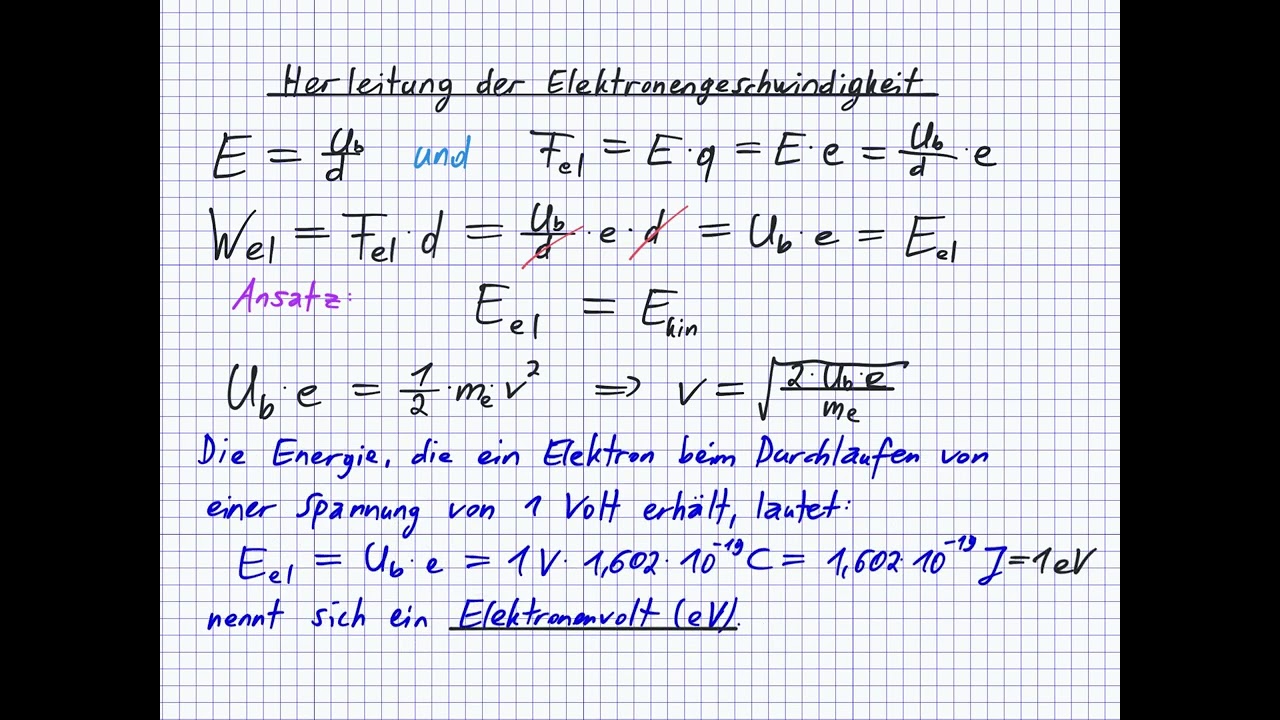 Herleitung der Elektronengeschwindigkeit
E = U_b/d und F_el = E · q = E · e = U_b/d · e
W_el = F_el · d = U_b/d · e · d = U_b · e = E_el
Ansatz: E_el = E_kin
U_b · e = 1/2 · m_e · v² ⇒ v = √(2 · U_b · e / m_e)
Die Energie, die ein Elektron beim Durchlaufen von
einer Spannung von 1 Volt erhält, lautet:
E_el = U_b · e = 1 V · 1,602 · 10⁻¹⁹ C = 1,602 · 10⁻¹⁹ J = 1 eV
nennt sich ein Elektronenvolt (eV).